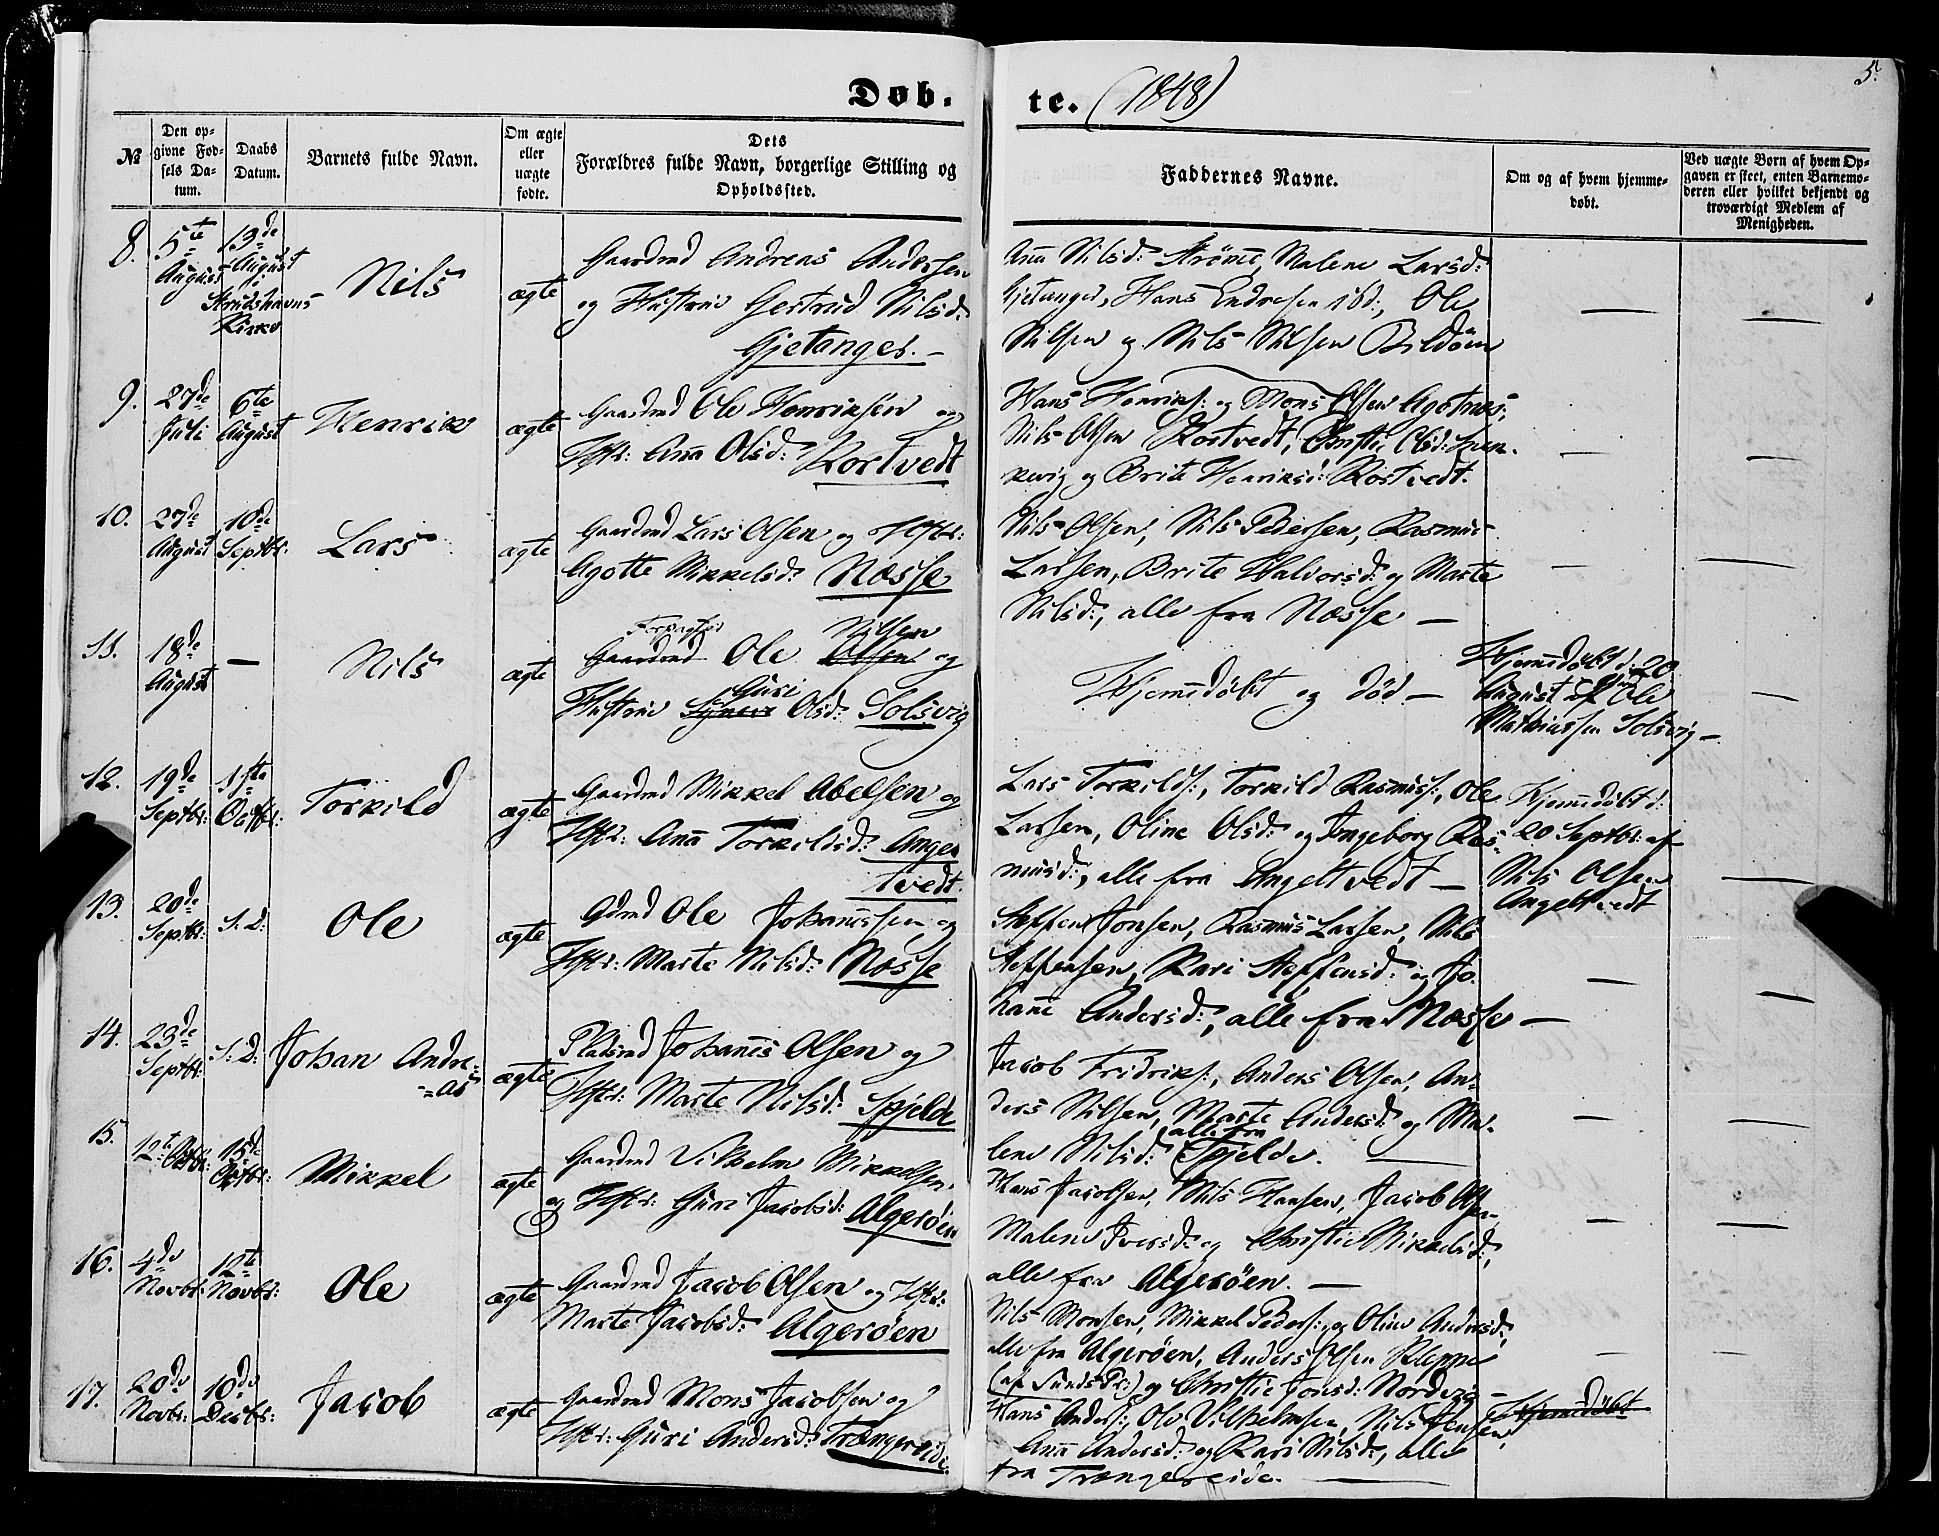 Døb.
te. (1848)
5.
№
Den op-
givne Fød-
sels Da-
tum.
Daabs
Datum.
Barnets fulde Navn.
Om ægte
eller
uægte
fødte.
Dets
Forældres fulde Navn, borgerlige Stilling og
Opholdssted.
Faddernes Navne.
Om og af hvem hjemme-
døbt.
Ved uægte Børn af hvem Op-
gaven er skeet, enten Barnemo-
deren eller hvilket bekjendt og
troværdigt Medlem af
Menigheden.
8.
5te
August
13de
August
i
Kirke
Nils
ægte
Gaardmd Andreas Andersen
og Hustrue Gertrud Nilsd:
Gjetanger. -
Anna Nilsd: Strømme, Malene Larsd:
Gjetanger, Hans Endresen ibd:, Ole
Nilsen og Nils Nilsen Bildøen
9.
27de
Juli
6te
August
Henrik
ægte
Gaardmd Ole Henriksen og
Hstr: Anna Olsd: Kortvedt
Hans Henriks: og Mons Olsen Agotnæs;
Nils Olsen Kortvedt, Christi Olsd:
og Brite Henriksd: Kortvedt.
10.
27de
August
10de
Septbr:
Lars
ægte
Gaardmd Lars Olsen og Hstr:
Agotte Mikkelsd: Næsse
Nils Olsen, Nils Pedersen, Rasmus
Larsen, Brite Halvorsd: og Marte
Nilsd:, alle fra Næsse —
11.
18de
August
—
Nils
ægte
Forpagter Nilsen
Gaardmd Ole Olsen og
Guri
Hustrue Olsd: Solsvig
Hjemmedøbt og død —
Hjemmedøbt d. 20
August af Ole
Mathiassen Solsvig —
12.
19de
Septbr:
1ste
Octbr:
Torkild
ægte
Gaardmd Mikkel Abelsen og
Hstr: Anna Torkildsd: Angel
tvedt.
Lars Torkilds:, Torkild Rasmuss:, Ole
Larsen, Oline Olsd: og Ingeborg Ras-
musd:, alle fra Angeltvedt —
Hjemmedøbt d:
20 Septbr: af
Nils Olsen
Angeltvedt
13.
20de
Septbr:
S. D:
Ole
ægte
Gdmd Ole Johannessen og
Hstr: Marte Nilsd: Næsse
Steffen Jonsen, Rasmus Larsen, Nils
Steffensen, Kari Steffensd: og Jo-
hanne Andersd:, alle fra Næsse —
14.
23de
Septbr:
S: D:
Johan Andre-
=as
ægte
Pladsmd Johannes Olsen og
Hstr: Marte Nilsd: Spjelde
Jacob Fridriks:, Anders Olsen, An-
ders Nilsen, Marte Andersd: og Ma-
alle fra
lene Nilsd: Spjelde.
15.
12te Octbr:
15de
Octbr:
Mikkel
ægte
Gaardmd Vilhelm Mikkelsen
og Hstr: Guri Jacobsd: Algerøen
Hans Jacobsen, Nils Hansen, Jacob Olsen,
Malene Iversd: og Christie Mikkelsd:,
alle fra Algerøen. —
16.
4de
Novbr:
12te
Novbr:
Ole
ægte
Gaardmd Jacob Olsen og Hstr:
Marte Jacobsd: Algerøen
Nils Monsen, Mikkel Peders: og Oline Andersd:,
alle fra Algerøen, Anders Olsen Kleppe
(af Sunds Pr:) og Christie Jonsd: Nordvig —
17.
20de
Novbr:
10de
Decbr:
Jacob
ægte
Gaardmd Mons Jacobsen og
Hstr: Guri Andersd: Trængereide.
Hans Anders:, Ole Vilhelmsen, Nils Jensen,
Anna Andersd: og Kari Nilsd:, alle
fra Trængereide. —
Hjemmedøbt